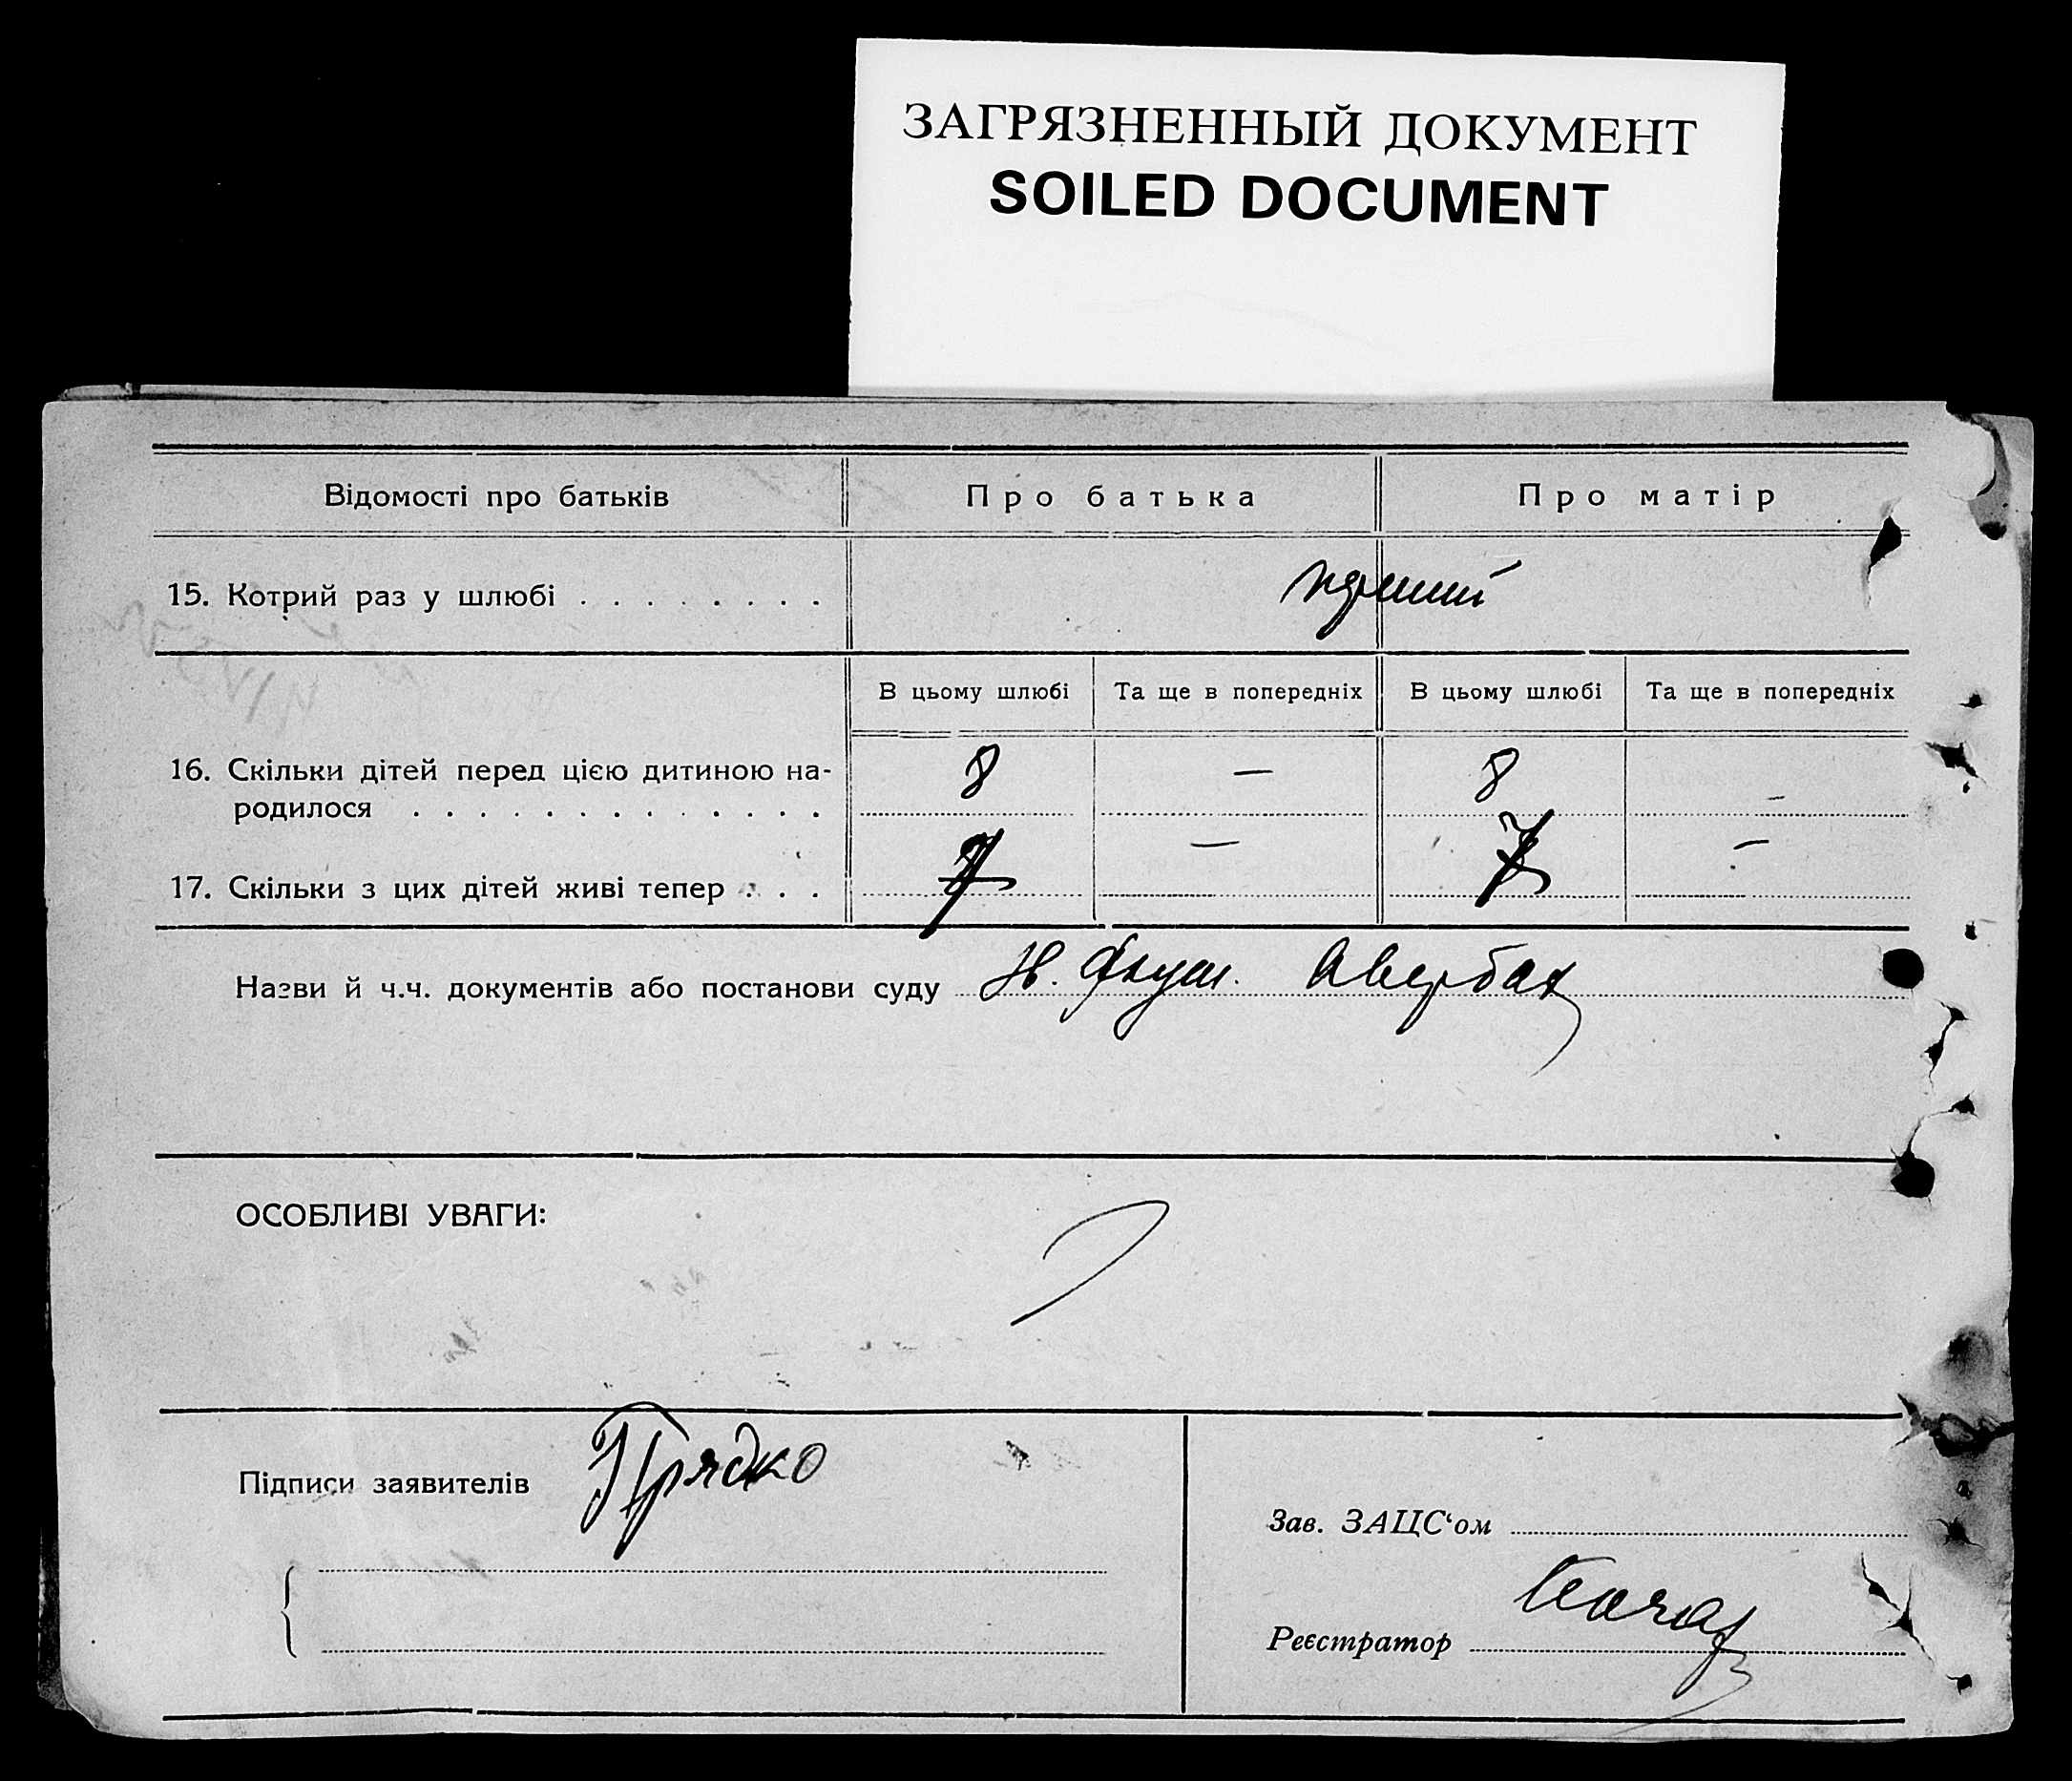 ЗАГРЯЗНЕННЫЙ ДОКУМЕНТ
SOILED DOCUMENT
Відомості про батьків
Про батька
Про матір
15. Котрий раз у шлюбі . . . . . . . .
перший
В цьому шлюбі
Та ще в попередніх
В цьому шлюбі
Та ще в попередніх
16. Скільки дітей перед цією дитиною на-
родилося . . . . . . . . . . . . .
8 — 8 –
17. Скільки з цих дітей живі тепер . . .
7 — 7 –
Назви й ч.ч. документів або постанови суду Авербах
ОСОБЛИВІ УВАГИ:
Підписи заявителів
Зав. ЗАЦС‘ом
Реєстратор